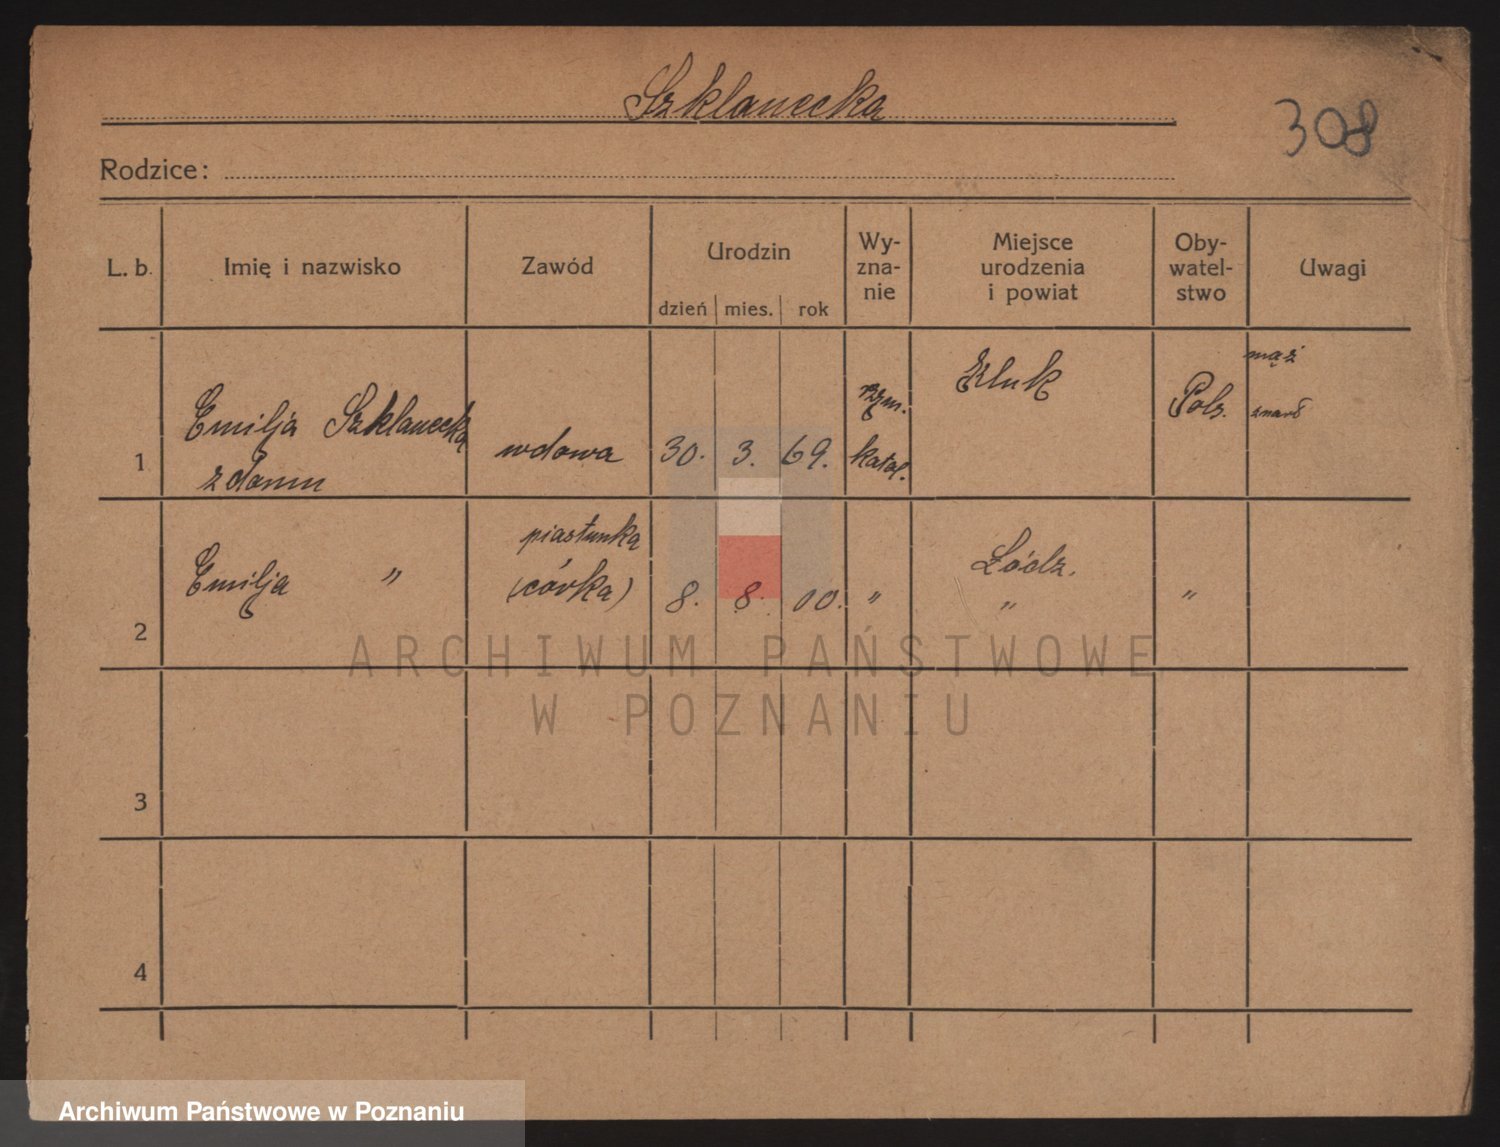 Szklanecka
308
Rodzice:
L. b. Imię i nazwisko Zawód Urodzin dzień mies. rok Wy-zna-nie Miejsce urodzenia i powiat Oby-watel-stwo Uwagi
mąż
Kluk
rzym. Polr. zmarł
Emilja Szklanecka
1 wdowa 30. 3. 69. katol.
z domu
piastunka
Łódz.
Emilja " (córka) 8. 8. 00. " " "
2
ARCHIWUM PAŃSTWOWE
W POZNANIU
3
4
Archiwum Państwowe w Poznaniu